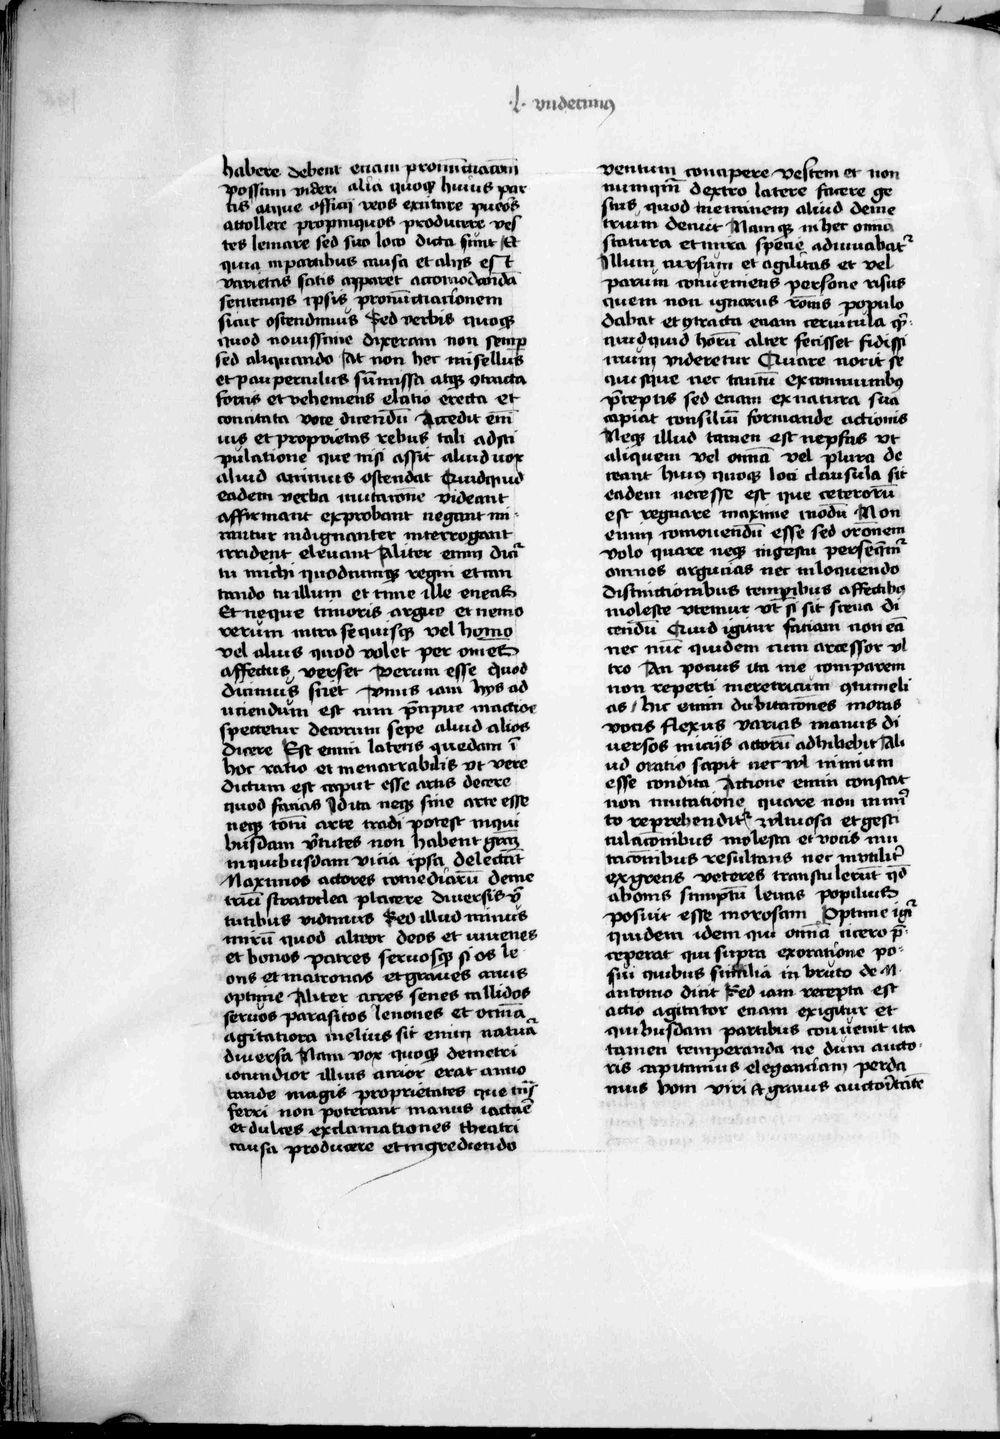 .l. vndecimus
habere debent etiam pronuntiationi
possunt videri alia quoque huius par
tis atque officij reos excitare pueros
attollere propinquos producere ves
tes leniare sed suo loco dicta sunt Et
quia in partibus causa et alijs est
varietas satis apparet accomodandam
sententijs ipsis pronuntiationem
sicut ostendimus Sed verbis quoque
quod nouissime dixeram non semper
sed aliquando At non hec misellus
et pauperculus summissa atque contracta
fortis et vehemens elatio erecta et
concitata voce dicendum Accedit enim
uis et proprietas rebus tali adsti
pulatione que nisi assit aliud vox
aliud animus ostendat Quidquid
eadem verba mutatione videant
affirmant exprobant negant mi-
rantur indignanter interrogant
irrident eleuant Aliter enim dicitur
tu michi quodcumque regni et can
tando tu illum et tune ille eneas
Et neque timoris argue et nemo
verum intra se quisque vel homo
vel alius quod volet per omnes
affectus verset verum esse quod
dicimus sciet vnus iam hijs ad
iiciendum est cum precipue in actione
spectetur decorum sepe aliud alios
dicere Est enim latens quedam in
hoc ratio et inenarrabilis vt vere
dictum est caput esse artis decere
quod facias Id ita neque sine arte esse
neque totum arte tradi potest in qui
busdam virtutes non habent gratiam
in quibusdam vicia ipsa delectant
Maximos actores comediarum deme
trium stratoclea placere diuersis vir
tutibus vidimus Sed illud minus
mirum quod alteor deos et iuuenes
et bonos patres seruosque si os le
ons et matronas et graues anus
optime Aliter acres senes callidos
seruos parasitos lenones et omnia
agitatiora melius sit enim natura
diuersa Nam vox quoque demetri
iocundior illius acrior erat anno
tande magis proprietates que transs
ferri non poterant manus iactare
et dulces exclamationes theatri
causa producere et ingrediendo
ventum concipere vestem et non
numquam dextro latere facere ge
stus quod neminem aliud deme
trium decuit Namque in hec omnia
statura et mira specie adiuuabatur
Illum cursum et agilitas et vel
parum conueniens persone risus
quem non ignarus rationis populo
dabat et contracta etiam ceruicula quic-
quidquid horum alter fecisset fidissi
mum videretur Quare norit se
quisque nec tantum ex communibus
preceptis sed etiam ex natura sua
capiat consilium formande actionis
Neque illud tamen est nephas vt
aliquem vel omnia vel plura de
ceant huius quoque loci clausula sit
eadem necesse est que ceterorum
est regnare maxime modum Non
enim comouendum esse sed orationem
volo quare neque in gestu persequemur
omnes argucias nec in loquendo
distinctionibus temporibus affectibus
moleste vtemur vt si sit scena di
cendum Quid igitur faciam non eam
nec nunc quidem cum arcessor vl
tro An pocius ita me comparem
non reperti meretricum contumeli
as / hic enim dubitationes moras
vocis flexus varias manus di
uersos nucus actorum adhibebit Ali
ud oratio sapit nec vult nimium
esse condita Actione enim constat
non imitatione quare non inmeri
to reprehenditur vultuosa et gesti
culationibus molesta et vocis mu
tationibus resultans nec inutiliter
ex grecis veteres transtulerunt quod
ab omnis sumptum lenas popilius
posuit esse morosam Optime igitur
quidem idem qui omnia cicero pre-
ceperat qui supra ex oratione po-
sui quibus similia in bruto de M
antonio dicit Sed iam recepta est
actio agitator etiam exigitur et
quibusdam partibus conuenit ita
tamen temperanda ne dum aucto-
ris captamus eleganciam perda
mus boni viri et grauis auctoritatem